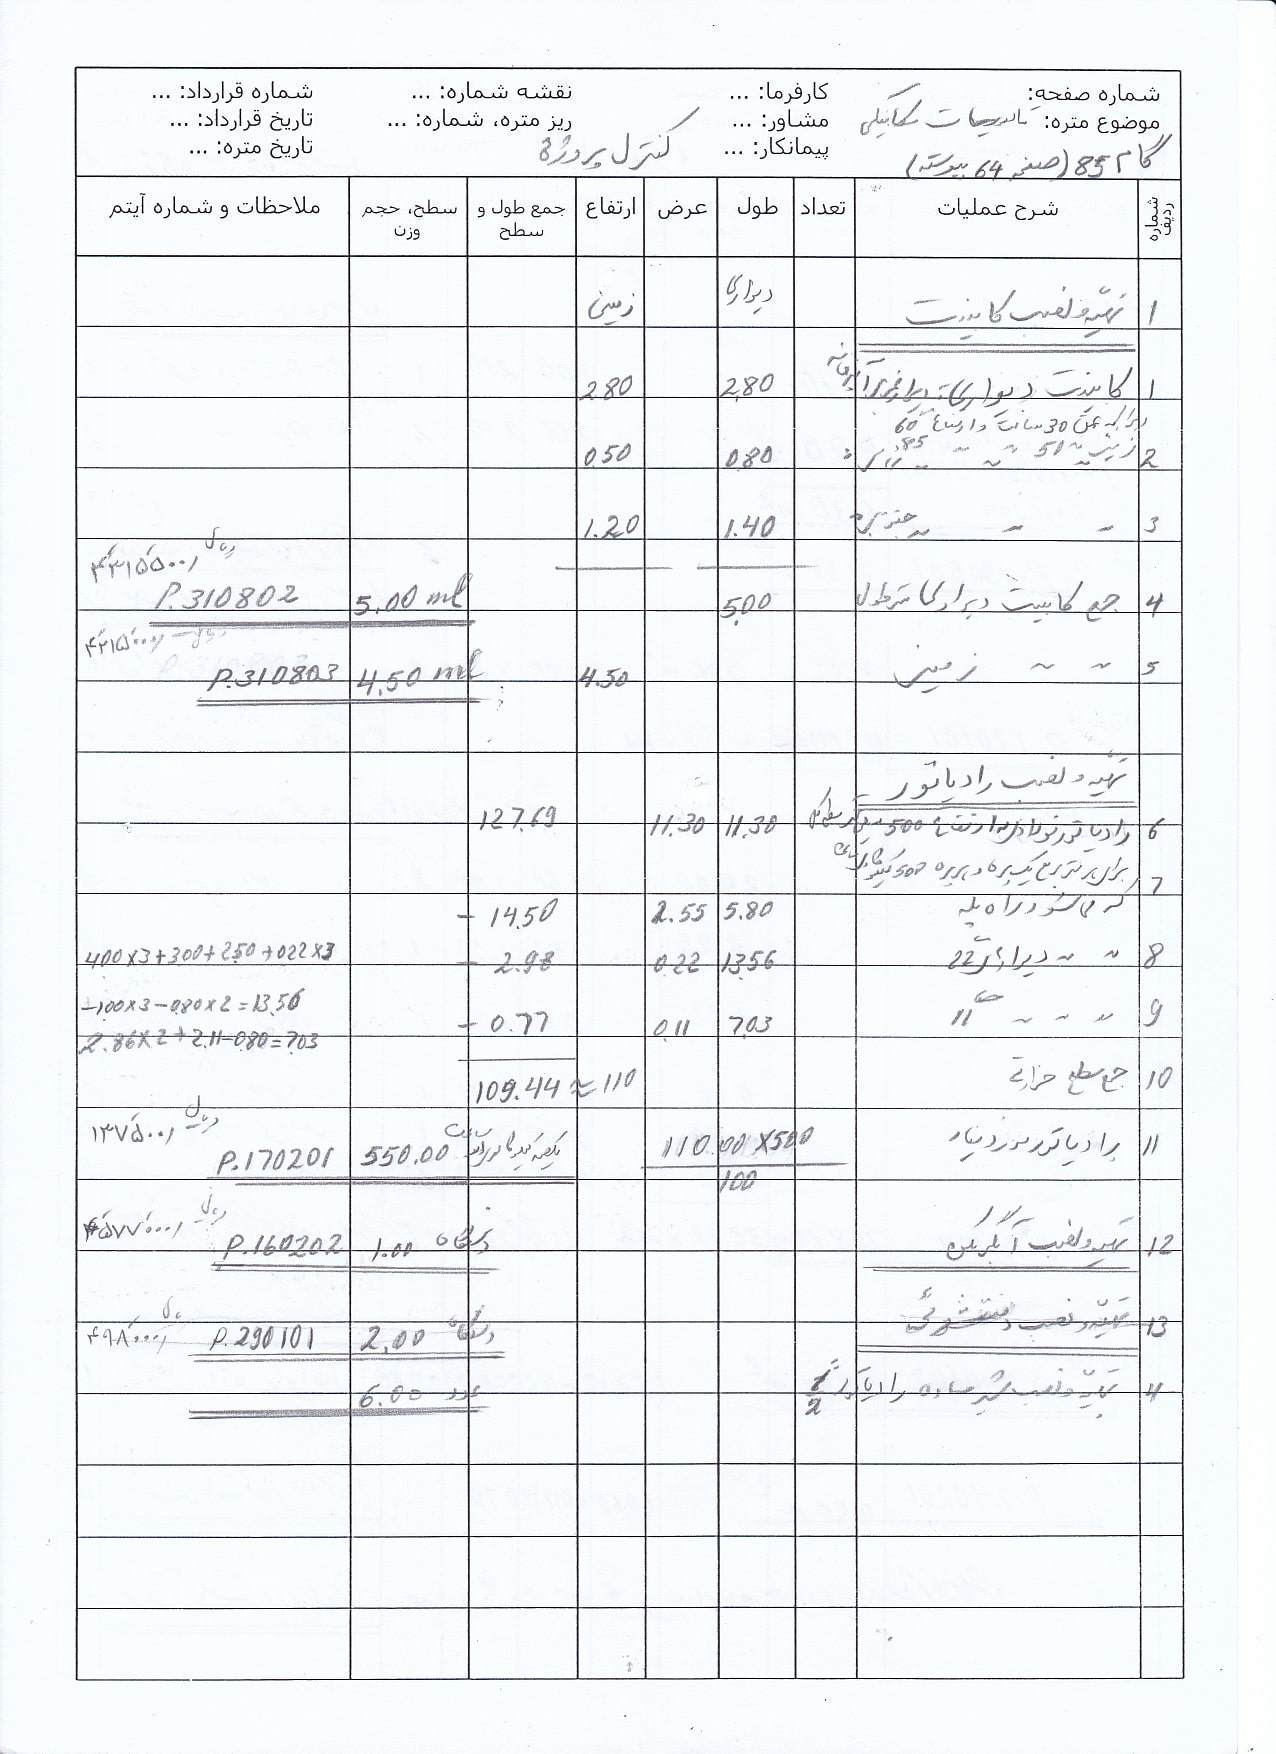 شماره صفحه:
کارفرما: ...
نقشه شماره: ...
شماره قرارداد: ...
موضوع متره: تاسیسات مکانیکی
مشاور: ...
ریز متره، شماره: ...
تاریخ قرارداد: ...
گام 85 (صفحه 64 پیوسته)
پیمانکار: ...
کنترل پروژه
تاریخ متره: ...
شماره ردیف
شرح عملیات
تعداد
طول
عرض
ارتفاع
جمع طول و سطح
سطح، حجم وزن
ملاحظات و شماره آیتم
1 تهیه و نصب کابینت دیواری زمینی
1 کابینت دیواری: دیوار غربی آشپزخانه 2,80 2.80
عمق 30 سانت و ارتفاع 60
2 زمینی 〃 50 〃 〃 〃 85 0.80 0.50
3 〃 〃 〃 جنوبی 1.40 1.20
4 جمع کابینت دیواری متر طول 5.00 5.00 ml P.310802
۴۳۱۵۵۰۰/ ریال
5 〃 〃 زمینی 4.50 4.50 ml P.310803
۴۲۱۵۰۰۰/ ریال
تهیه و نصب رادیاتور
6 رادیاتور فولادی به ارتفاع 500 11.30 11.30 127.69
7 برای هر متر مربع یک پره و هر پره 500 کیلو کالری
کم می شود راه پله 5.80 2.55 14.50 -
8 〃 〃 دیوارهای 22 13.56 0.22 2.98 - 400x3+300+250+022x3
-100x3-080x2=13.56
9 〃 〃 〃 11 7.03 0.11 0.77 - 2.86x2+2.11-080=7.03
10 جمع سطح حرارتی 109.44 ≈ 110
11 رادیاتور مورد نیاز 110.00 x 500 / 100 550.00 P.170201
۱۳۷۵۰۰/ ریال
12 تهیه و نصب آبگرمکن 1.00 دستگاه P.160202
۴۵۷۷۰۰۰/ ریال
13 تهیه و نصب 2.00 دستگاه P.290101
۴۹۸۰۰۰/ ریال
4 تهیه و نصب شیر ساده رادیاتور 1/2" 6.00 عدد